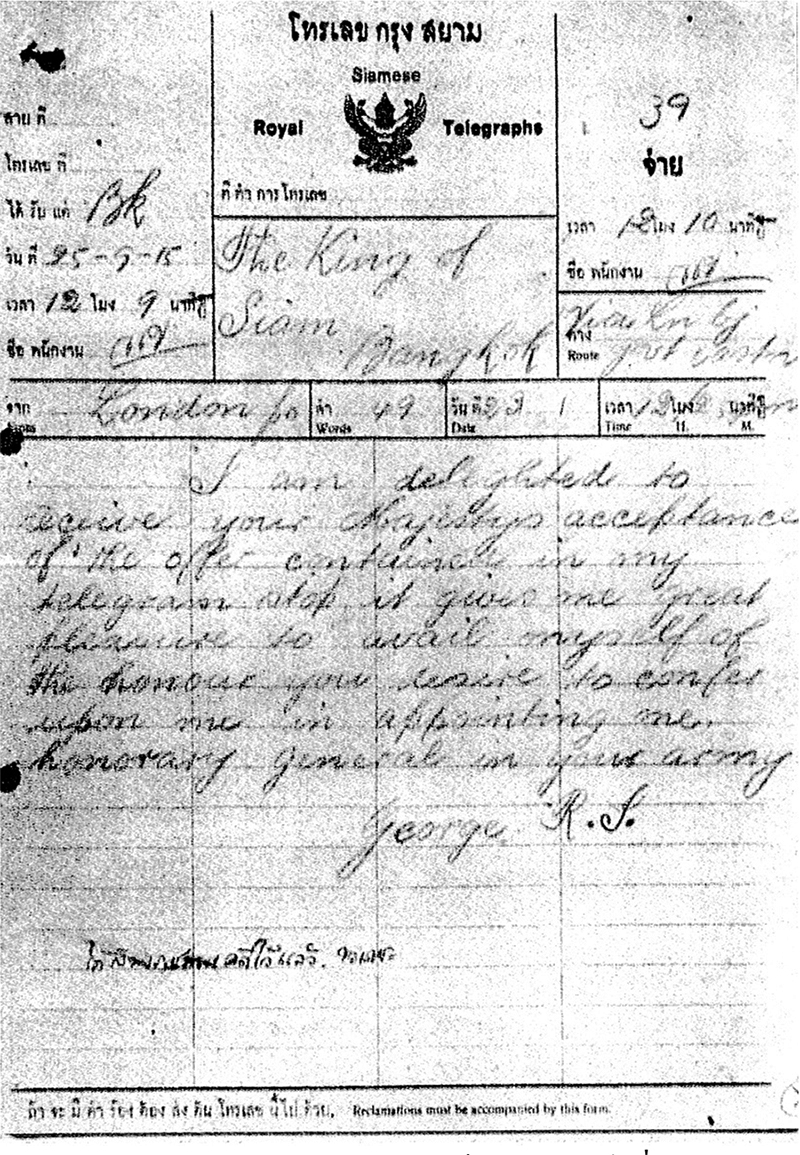 โทรเลข กรุง สยาม
Siamese
Royal Telegraphs
ที่ ทำ การ โทรเลข
สาย ที่
โทรเลข ที่
ได้ รับ แต่ Bk
วัน ที่ 25-9-15
เวลา 12 โมง 9 นาที
ชื่อ พนักงาน
39
จ่าย
เวลา 12 โมง 10 นาที
ชื่อ พนักงาน
The King of
Siam
Bangkok
ทาง
Route
จาก London
คำ 49
Words
วัน ที่ 23 1
Date
เวลา 12 โมง นาที
Time H. M.
I am delighted to
receive your Majestys acceptance
of the offer contained in my
telegram stop it gives me great
pleasure to avail myself of
the honour you desire to confer
upon me in appointing me
honorary general in your army
George R.I.
ถ้า จะ มี คำ ร้อง ต้อง ส่ง ต้น โทรเลข นี้ ไป ด้วย. Reclamations must be accompanied by this form.